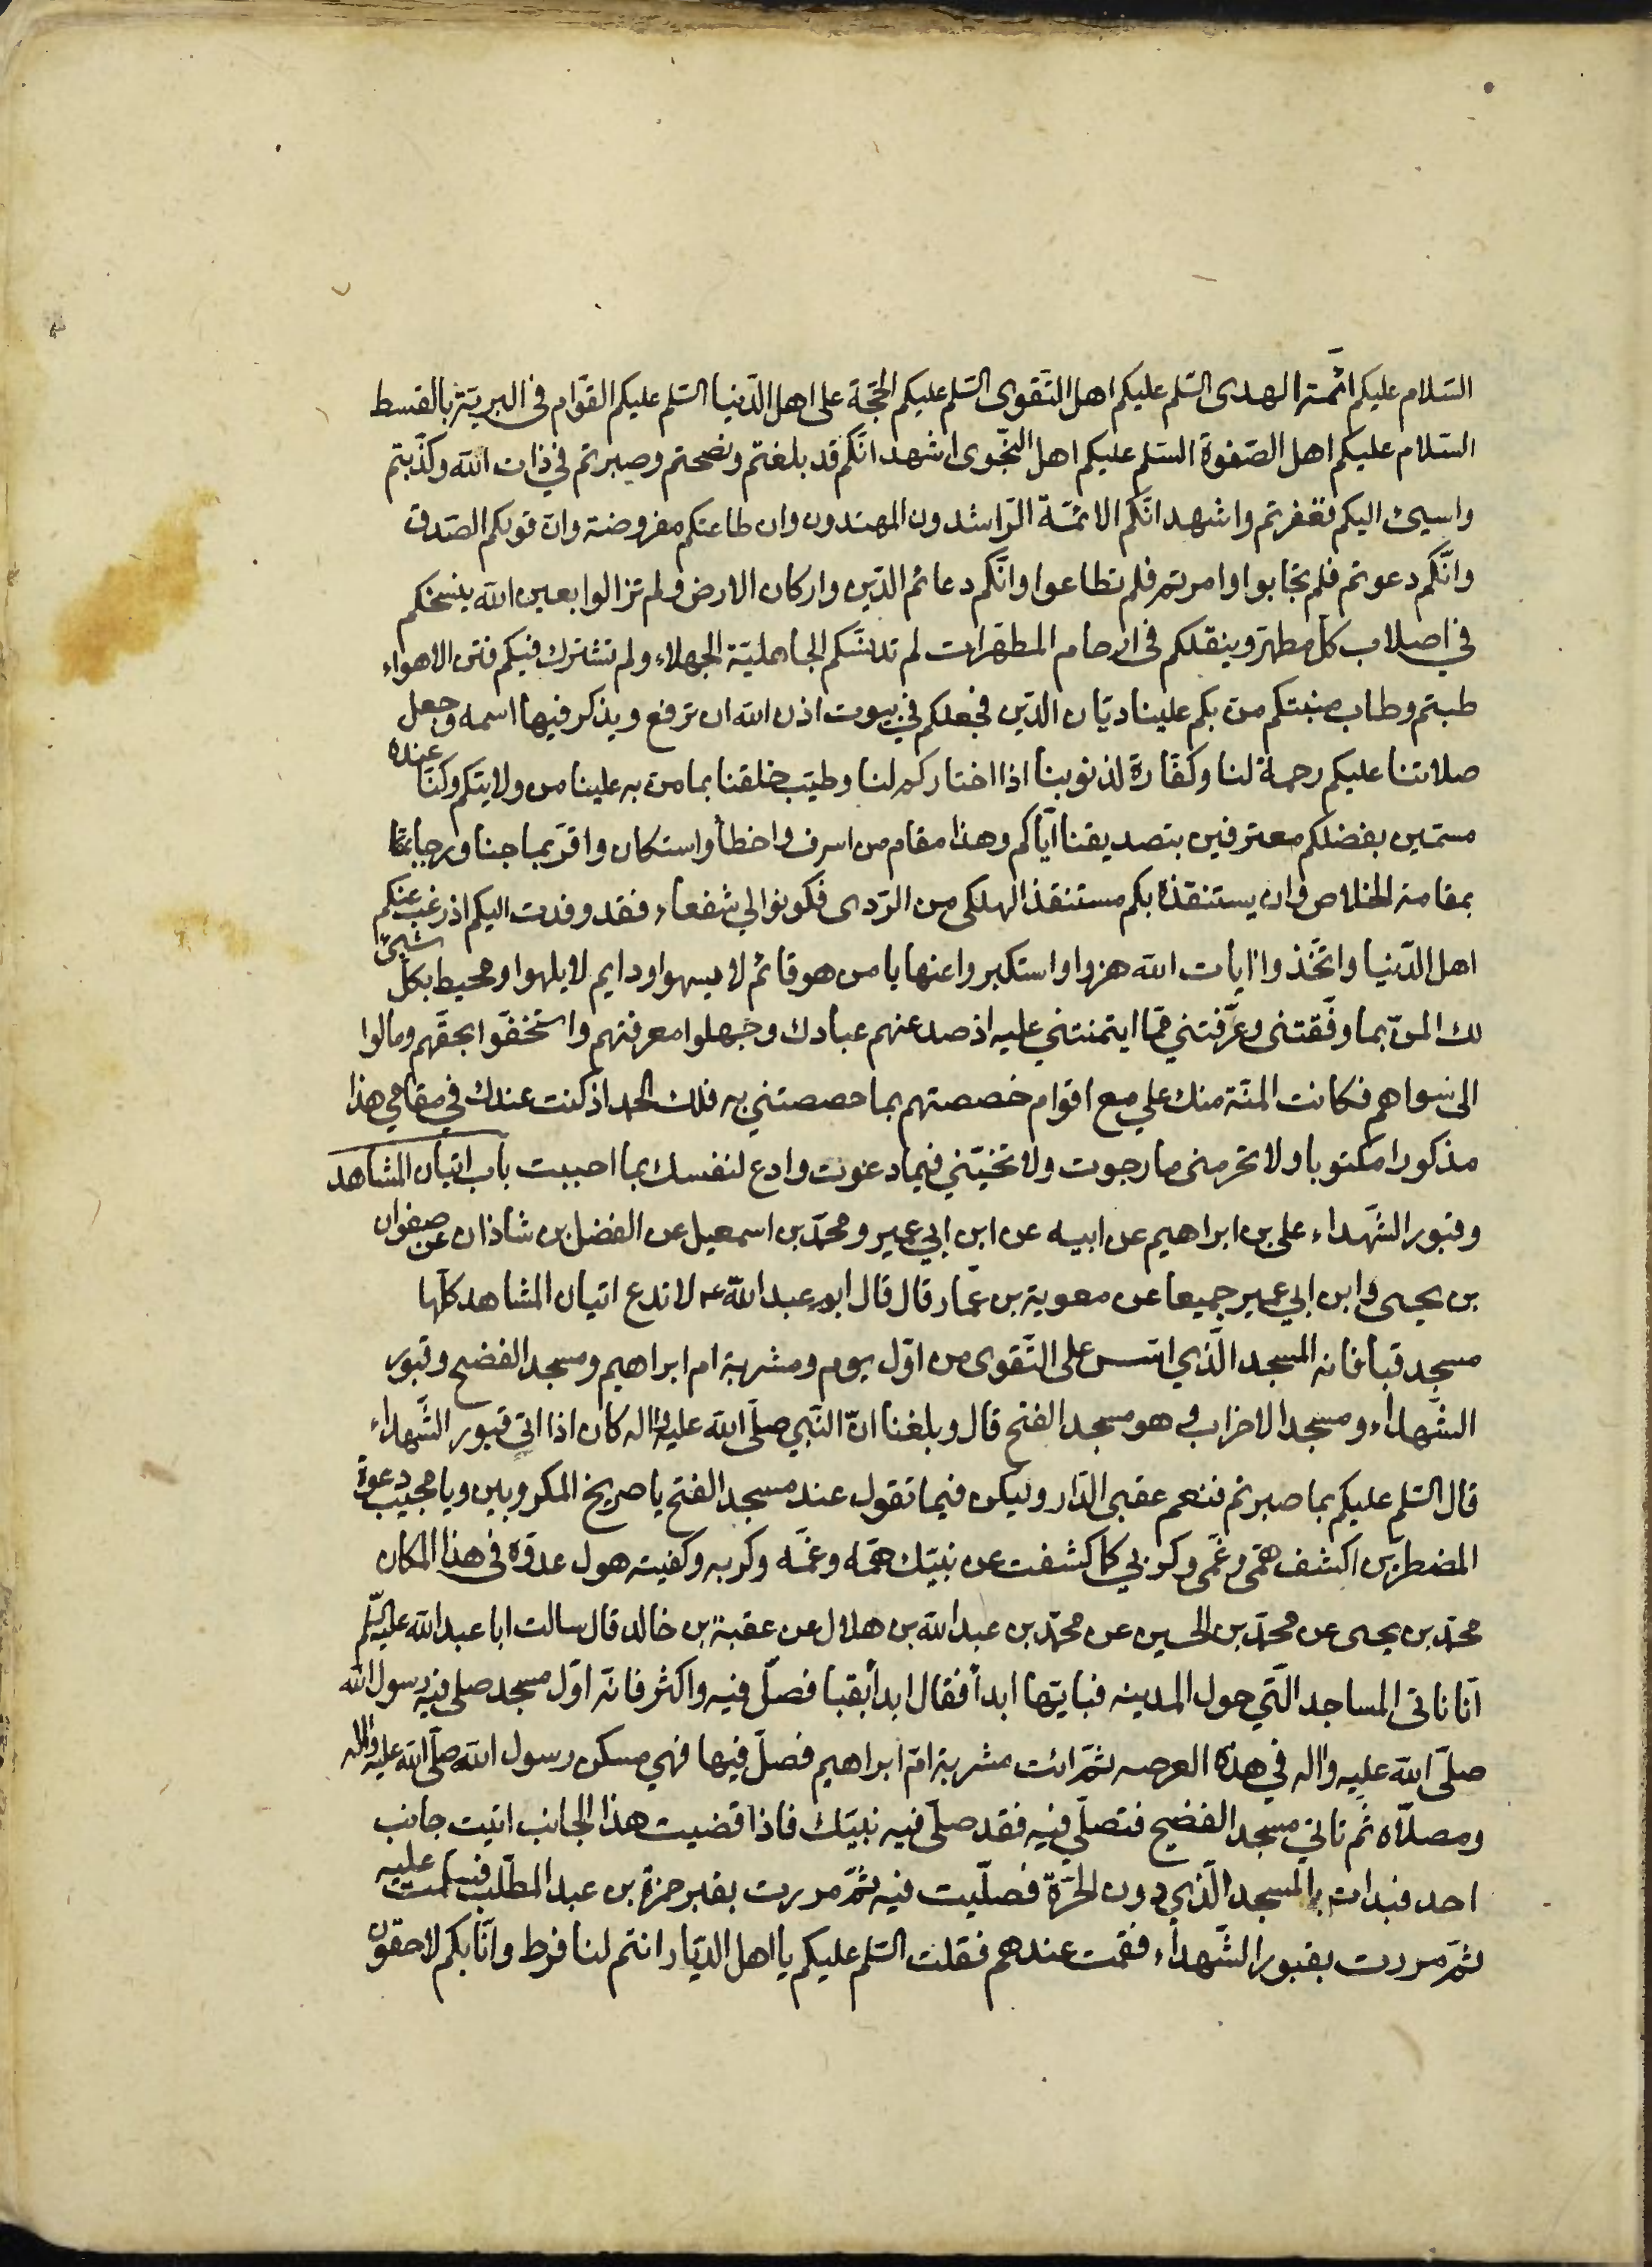 السّلام عليكم ائمّة الهدى السّلم عليكم اهل التّقوى السّلم عليكم الحجّة على اهل الدّنيا السّلم عليكم القوّام فى البريّة بالقسط
السّلام عليكم اهل الصّفوة السّلم عليكم اهل النّجوى اشهد انّكم قد بلغتم ونصحتم وصبرتم في ذات الله وكذّبتم
واسيئ اليكم فغفرتم واشهد انّكم الائمّة الرّاشدون المهتدون وان طاعتكم مفروضة وانّ قولكم الصّدق
وانّكم دعوتم فلم تجابوا وامرتم فلم تطاعوا وانّكم دعائم الدّين واركان الارض ولم تزالوا بعين الله ينسخكم
في اصلاب كلّ مطهّر وينقلكم فى ارحام المطهّرات لم تدنّسكم الجاهليّة الجهلاء ولم تشترك فيكم فتن الاهواء
طبتم وطاب منبتكم منّ بكم علينا ديّان الدّين فجعلكم في بيوت اذن الله ان ترفع ويذكر فيها اسمه وجعل
صلاتنا عليكم رحمة لنا وكفّارة لذنوبنا اذا اختاركم لنا وطيّب خلقنا بما من به علينا من ولايتكم وكنّا عنده
مسمّين بفضلكم معترفين بتصديقنا ايّاكم وهذا مقام من اسرف واخطأ واستكان واقرّ بما جنا ورجا
بمقامه الخلاص وان يستنقذه بكم مستنقذ الهلكى من الرّدى فكونوا لي شفعاء فقد وفدت اليكم اذ رغب عنكم
اهل الدّنيا واتّخذوا ايات الله هزوا واستكبروا عنها يا من هو قائم لا يسهوا ودايم لا يلهوا ومحيط بكلّ شيئ
لك المنّ بما وفّقتنى وعرّفتني ممّا ايتمنتني عليه اذ صد عنهم عبادك وجهلوا معرفتهم واستخفّوا بحقّهم ومالوا
الى سواهم فكانت المنّة منك علي مع اقوام خصصتهم بما خصصتني به فلك الحمد اذ كنت عندك في مقامي هذا
مذكورا مكتوبا ولا تحرمنى ما رجوت ولا تخيّبني فيما دعوت وادع لنفسك بما احببت باب اتيان المشاهد
وقبور الشّهداء على بن ابراهيم عن ابيه عن ابن ابي عمير ومحمّد بن اسمعيل عن الفضل بن شاذان عن صفوان
بن يحيى وابن ابي عمير جميعا عن معوية بن عمّار قال قال ابو عبد الله ع لا تدع اتيان المشاهد كلّها
مسجد قبا فانه المسجد الّذي اسّس على التّقوى من اوّل يوم ومشربة ام ابراهيم ومسجد الفضيح وقبور
الشّهداء ومسجد الاحزاب وهو مسجد الفتح قال وبلغنا انّ النّبي صلّى الله عليه واله كان اذا اتى قبور الشّهداء
قال السّلم عليكم بما صبرتم فنعم عقبى الدّار وليكن فيما تقول عند مسجد الفتح يا صريخ المكروبين ويا مجيب دعوة
المضطرّين اكشف همّى وغمّى وكربي كما كشفت عن نبيّك همّه وغمّه وكربه وكفيته هول عدوّه فى هذا المكان
محمّد بن يحيى عن محمّد بن الحسين عن محمّد بن عبد الله بن هلال عن عقبة بن خالد قال سالت ابا عبد الله عليه السّلم
انّا ناتى المساجد الّتي حول المدينه فبايّها ابدأ فقال ابدأ بقبا فصلّ فيه واكثر فانّه اوّل مسجد صلى فيه رسول الله
صلّى الله عليه واله في هذه العرصه ثمّ ائت مشربة امّ ابراهيم فصلّ فيها فهي مسكن رسول الله صلّى الله عليه واله
ومصلّاه ثم تاتي مسجد الفضيح فتصلّي فيه فقد صلّى فيه نبيّك فاذا قضيت هذا الجانب اتيت جانب
احد فبدات بالمسجد الّذي دون الحرّة فصلّيت فيه ثمّ مررت بقبر حمزة بن عبد المطّلب فسلمت عليه
ثمّ مررت بقبور الشّهداء فقمت عندهم فقلت السّلم عليكم يا اهل الدّيار انتم لنا فرط وانّا بكم لاحقون